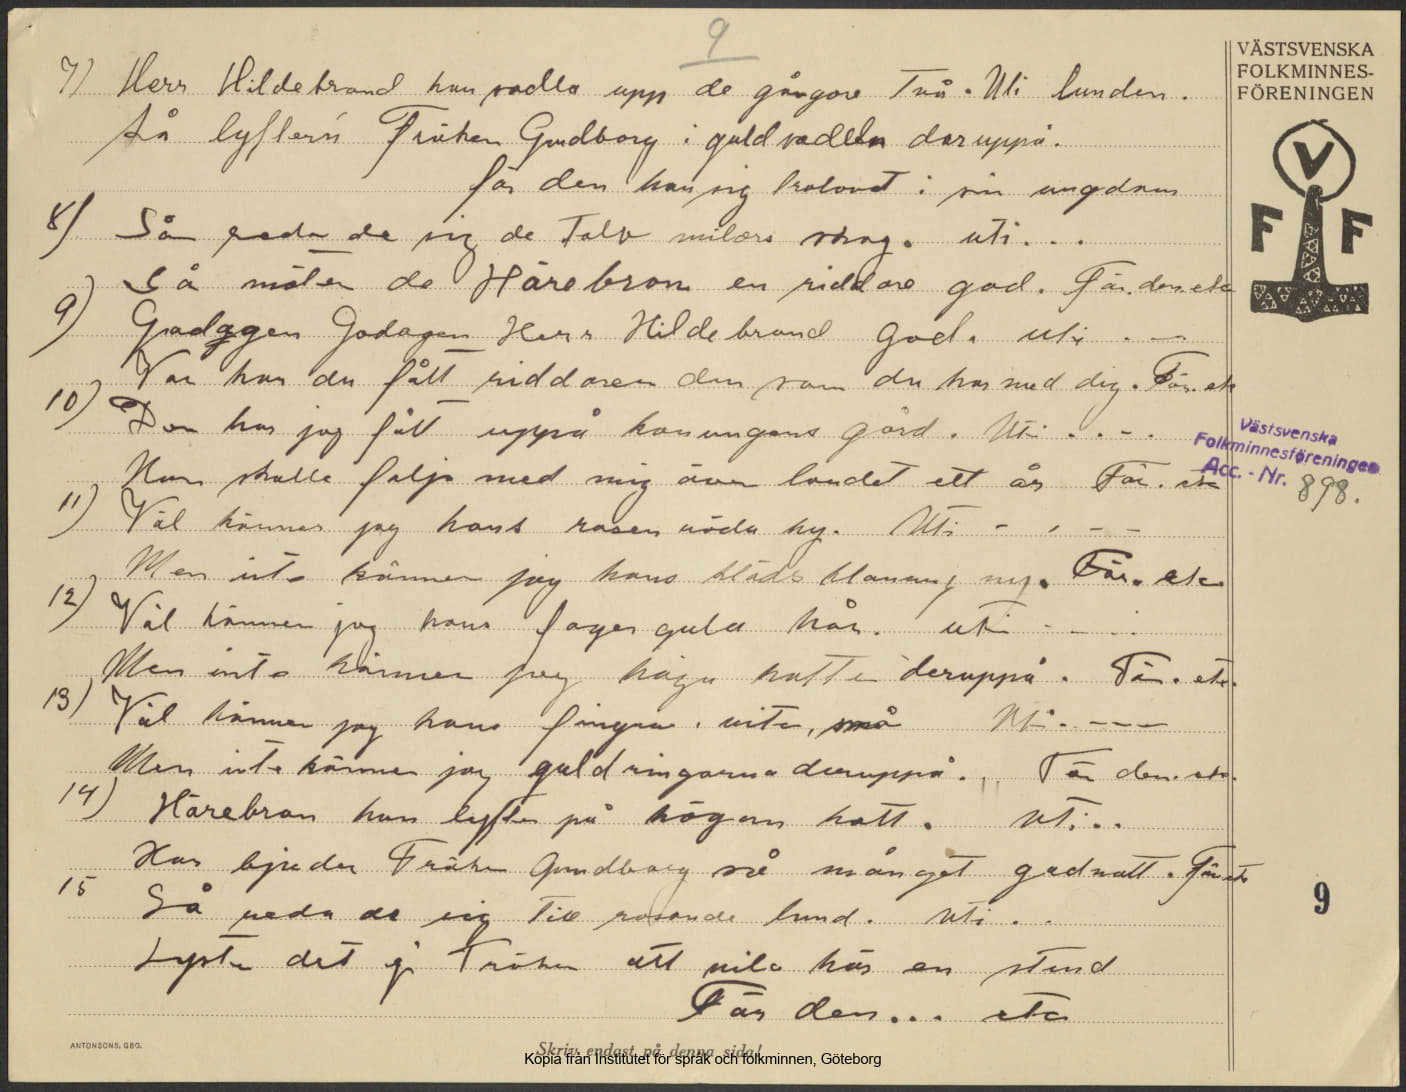 9
VÄSTSVENSKA
FOLKMINNES-
FÖRENINGEN
V
F F
7) Herr Hildebrand han sadla upp de gångare två. Uti lunden.
Så lyftern Fröken Gundborg i guldsadeln deruppå.
för den han sig trolovat i sin ungdom
8) Så reda de sig de tolv milars skog. uti...
Så möter de Härebron en riddare god. För den etc
9) Godagen Godagen Herr Hildebrand god. uti . -
Var har du fått riddaren den som du har med dig. För. etc
10) Den har jag fått uppå konungens gård. Uti . . - .
Han skulle följa med mig över landet ett år För. etc
Västsvenska
Folkminnesföreningen
Acc. - Nr. 898.
11) Väl känner jag hans rosen röda hy. Uti - . - -
Men inte känner jag hans ny. För. etc
12) Väl känner jag hans fager gula hår. uti - - . .
Men inte känner jag höga hatten deruppå. För. etc.
13) Väl känner jag hans fingra vita, små Uti. - - -
Men inte känner jag guldringarna deruppå. För den. etc.
14) Härebron han lyfter på högan hatt. Uti..
Han bjuder Fröken Gundborg så mången godnatt. För etc
15 Så reda de sig till rosande lund. Uti . .
Lyster det ej Fröken att vila här en stund
För den... etc
9
ANTONSONS, GBG.
Skriv endast på denna sida!
Kopia från Institutet för språk och folkminnen, Göteborg